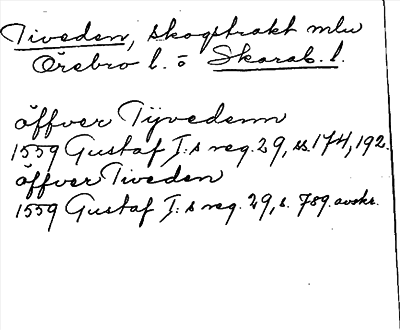 Tiveden, skogstrakt mlu
Örebro l. o Skarab. l.
öffver Tÿvedenn
1559 Gustaf I:s reg. 29, ss. 174, 192.
öffver Tiveden
1559 Gustaf I:s reg. 29, s. 789. avskr.